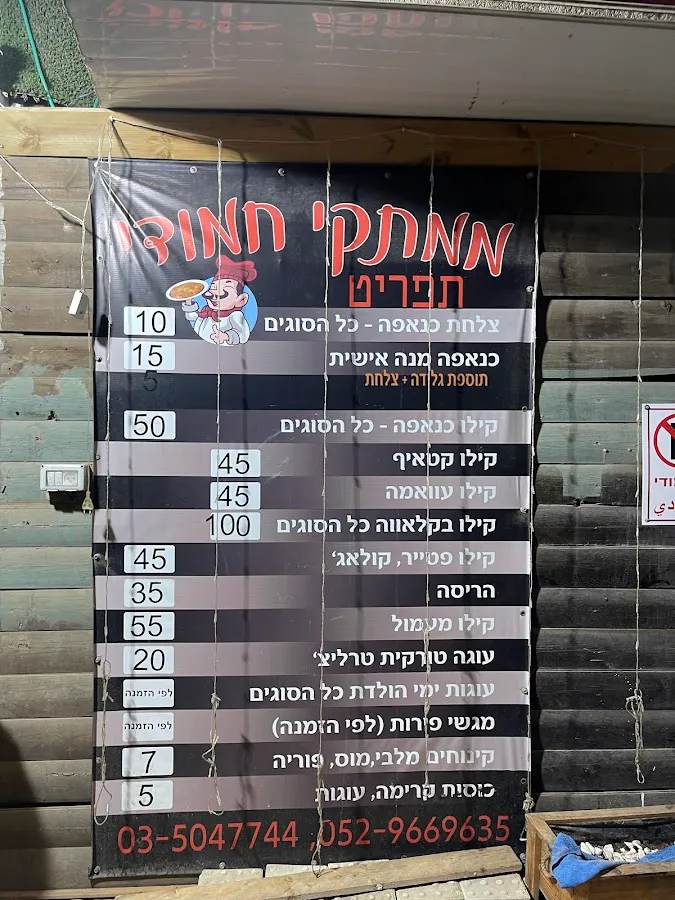 ממתקי חמודי
תפריט
צלחת כנאפה - כל הסוגים 10
כנאפה מנה אישית 15
תוספת גלידה + צלחת 5
קילו כנאפה - כל הסוגים 50
קילו קטאיף 45
קילו עוואמה 45
קילו בקלאווה כל הסוגים 100
קילו פטייר, קולאג׳ 45
הריסה 35
קילו מעמול 55
עוגה טורקית טרליצ׳ 20
עוגות ימי הולדת כל הסוגים לפי הזמנה
מגשי פירות (לפי הזמנה) לפי הזמנה
קינוחים מלבי,מוס, פוריה 7
כוסות קרימה, עוגות 5
03-5047744 ,052-9669635